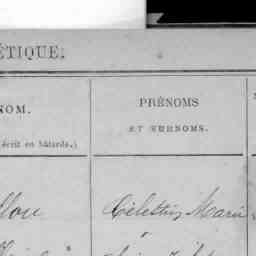 ÉTIQUE.
NOM.
PRÉNOMS
ET SURNOMS.
écrit en bâtarde.)
llou Célestin Marie